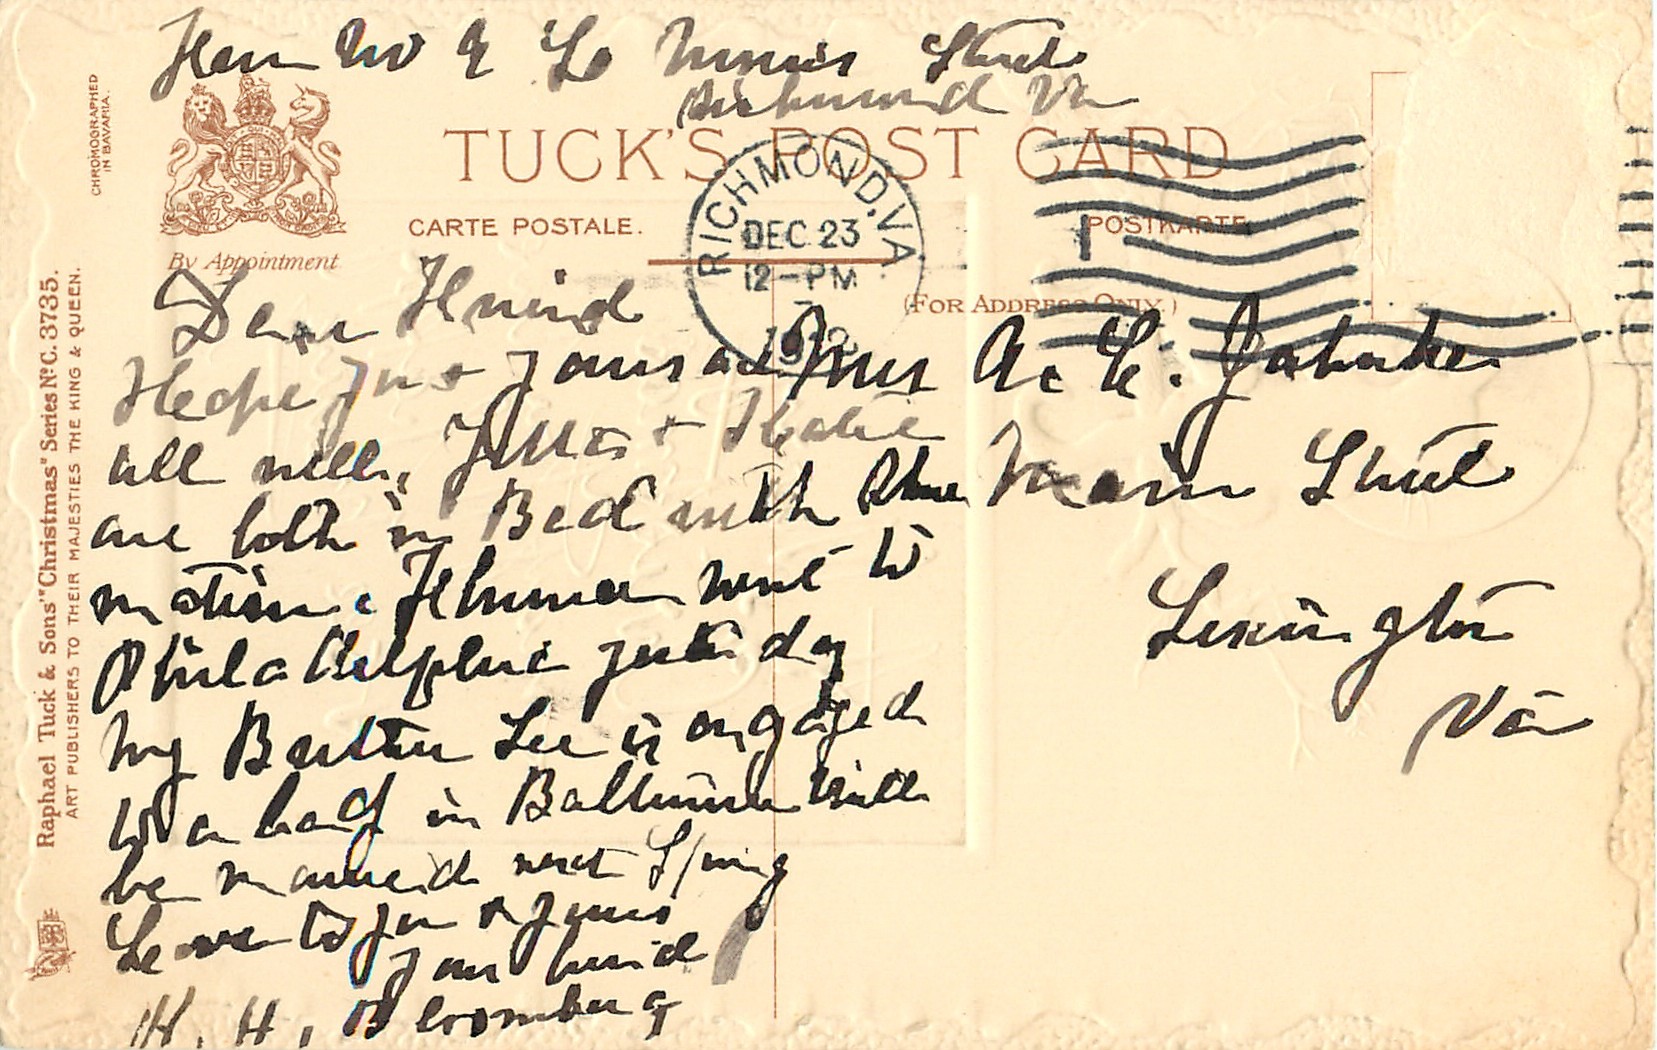 Richmond Va
CHROMOGRAPHED
IN BAVARIA.
TUCK'S POST CARD
CARTE POSTALE.
POSTKARTE
By Appointment
(FOR ADDRESS ONLY.)
RICHMOND, VA.
DEC 23
12-PM
Raphael Tuck & Sons' "Christmas" Series No C. 3735.
ART PUBLISHERS TO THEIR MAJESTIES THE KING & QUEEN.
Dear Freind
Hope you + yours are
all well, + Katie
are both in Bed with Rhue
matism. went to
Philadelphia yesterday
my Lee is engaged
to a lady in Baltimore will
be married next Spring
Love to you + yours
your freind
H. H. Bloomberg
Mrs A. L.
Main Street
Lexington
Va